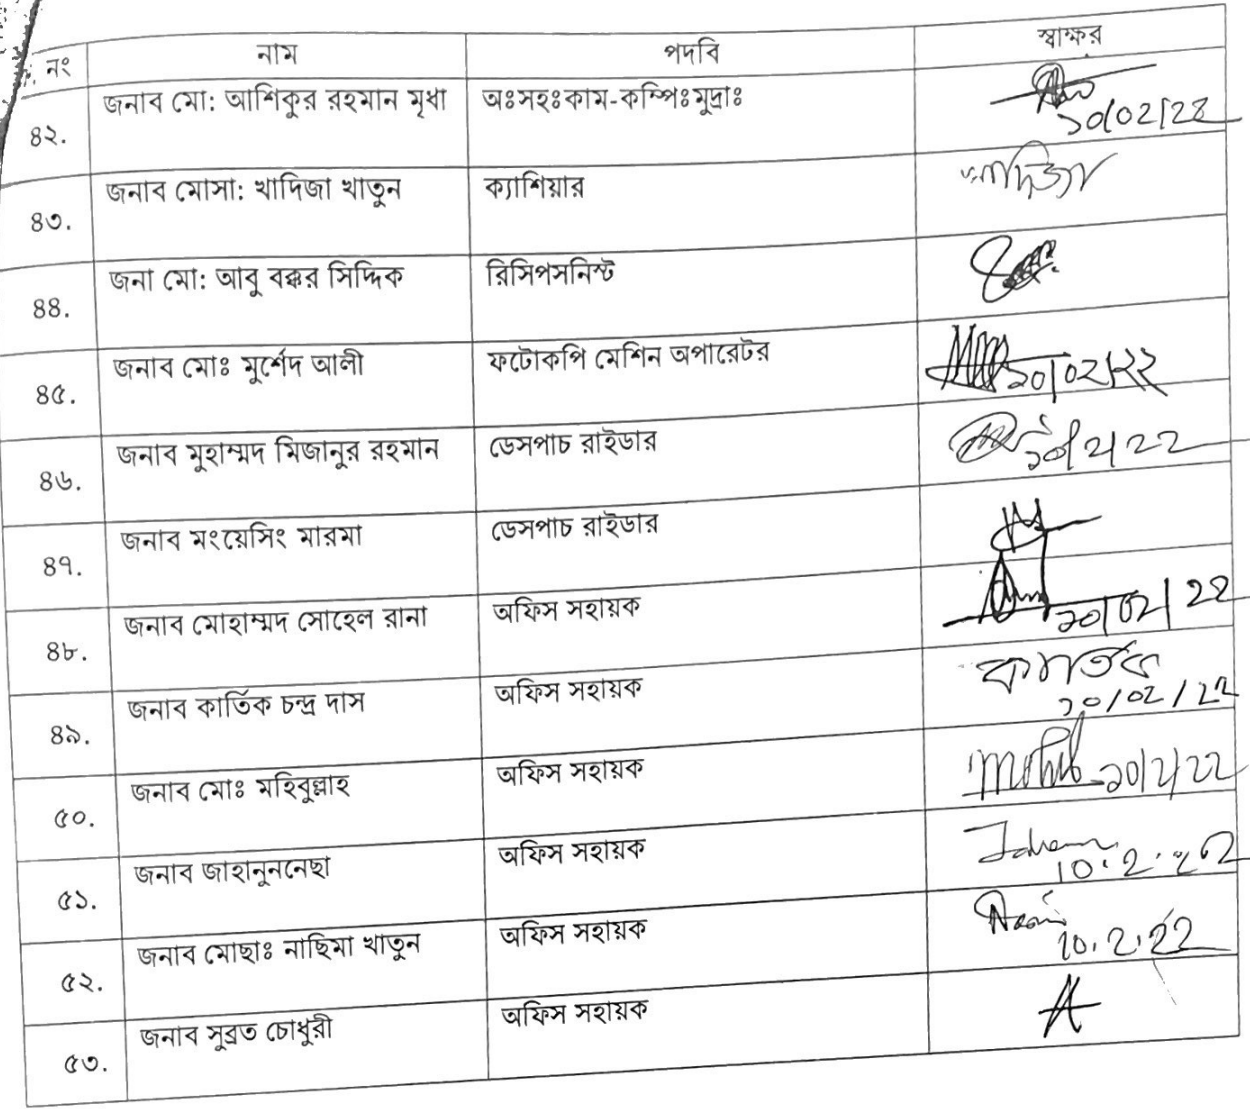 নং নাম পদবি স্বাক্ষর
৪২. জনাব মো: আশিকুর রহমান মৃধা অঃসহঃকাম-কম্পিঃমুদ্রাঃ
৪৩. জনাব মোসা: খাদিজা খাতুন ক্যাশিয়ার খাদিজা
৪৪. জনা মো: আবু বক্কর সিদ্দিক রিসিপসনিস্ট
৪৫. জনাব মোঃ মুর্শেদ আলী ফটোকপি মেশিন অপারেটর ১০/০২/২২
৪৬. জনাব মুহাম্মদ মিজানুর রহমান ডেসপাচ রাইডার
৪৭. জনাব মংয়েসিং মারমা ডেসপাচ রাইডার
৪৮. জনাব মোহাম্মদ সোহেল রানা অফিস সহায়ক
৪৯. জনাব কার্তিক চন্দ্র দাস অফিস সহায়ক কার্তিক
১০/০২/২২
৫০. জনাব মোঃ মহিবুল্লাহ অফিস সহায়ক ১০/২/২২
৫১. জনাব জাহানুননেছা অফিস সহায়ক
৫২. জনাব মোছাঃ নাছিমা খাতুন অফিস সহায়ক
10.2.22
৫৩. জনাব সুব্রত চৌধুরী অফিস সহায়ক